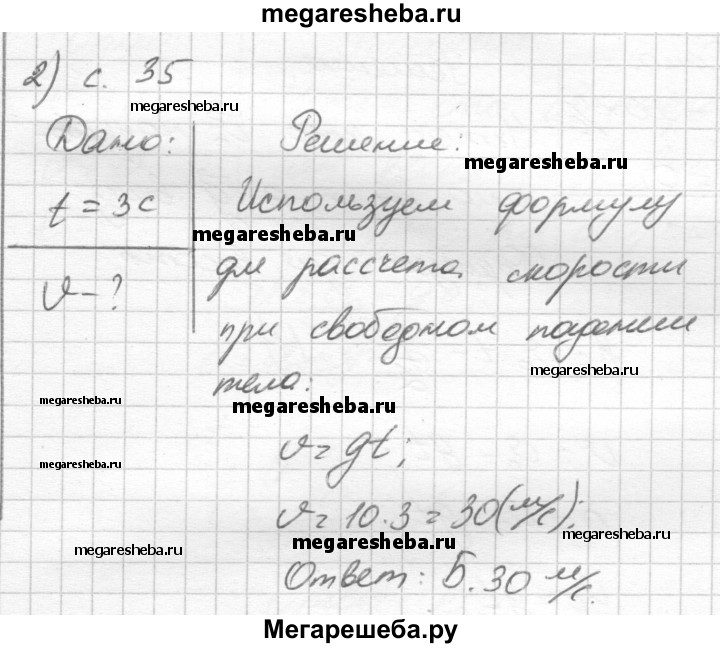 megaresheba.ru
2) с. 35
megaresheba.ru
Дано: Решение:
megaresheba.ru
t = 3с Используем формулу
megaresheba.ru
v - ? для рассчета скорости
при свободном падении
megaresheba.ru
тела:
megaresheba.ru
megaresheba.ru
v = gt;
megaresheba.ru
v = 10 . 3 = 30 (м/с);
megaresheba.ru
megaresheba.ru
megaresheba.ru
Ответ: Б. 30 м/с.
Мегарешеба.ру